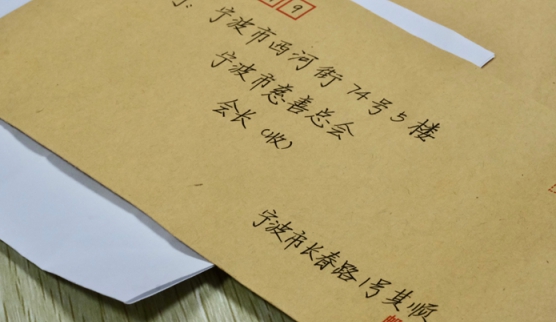 9
宁波市西河街74号5楼
宁波市慈善总会
会长（收）
宁波市长春路1号其顺